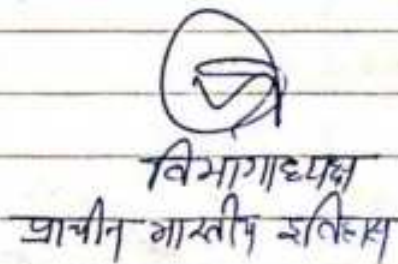 विभागाध्यक्ष
प्राचीन भारतीय इतिहास